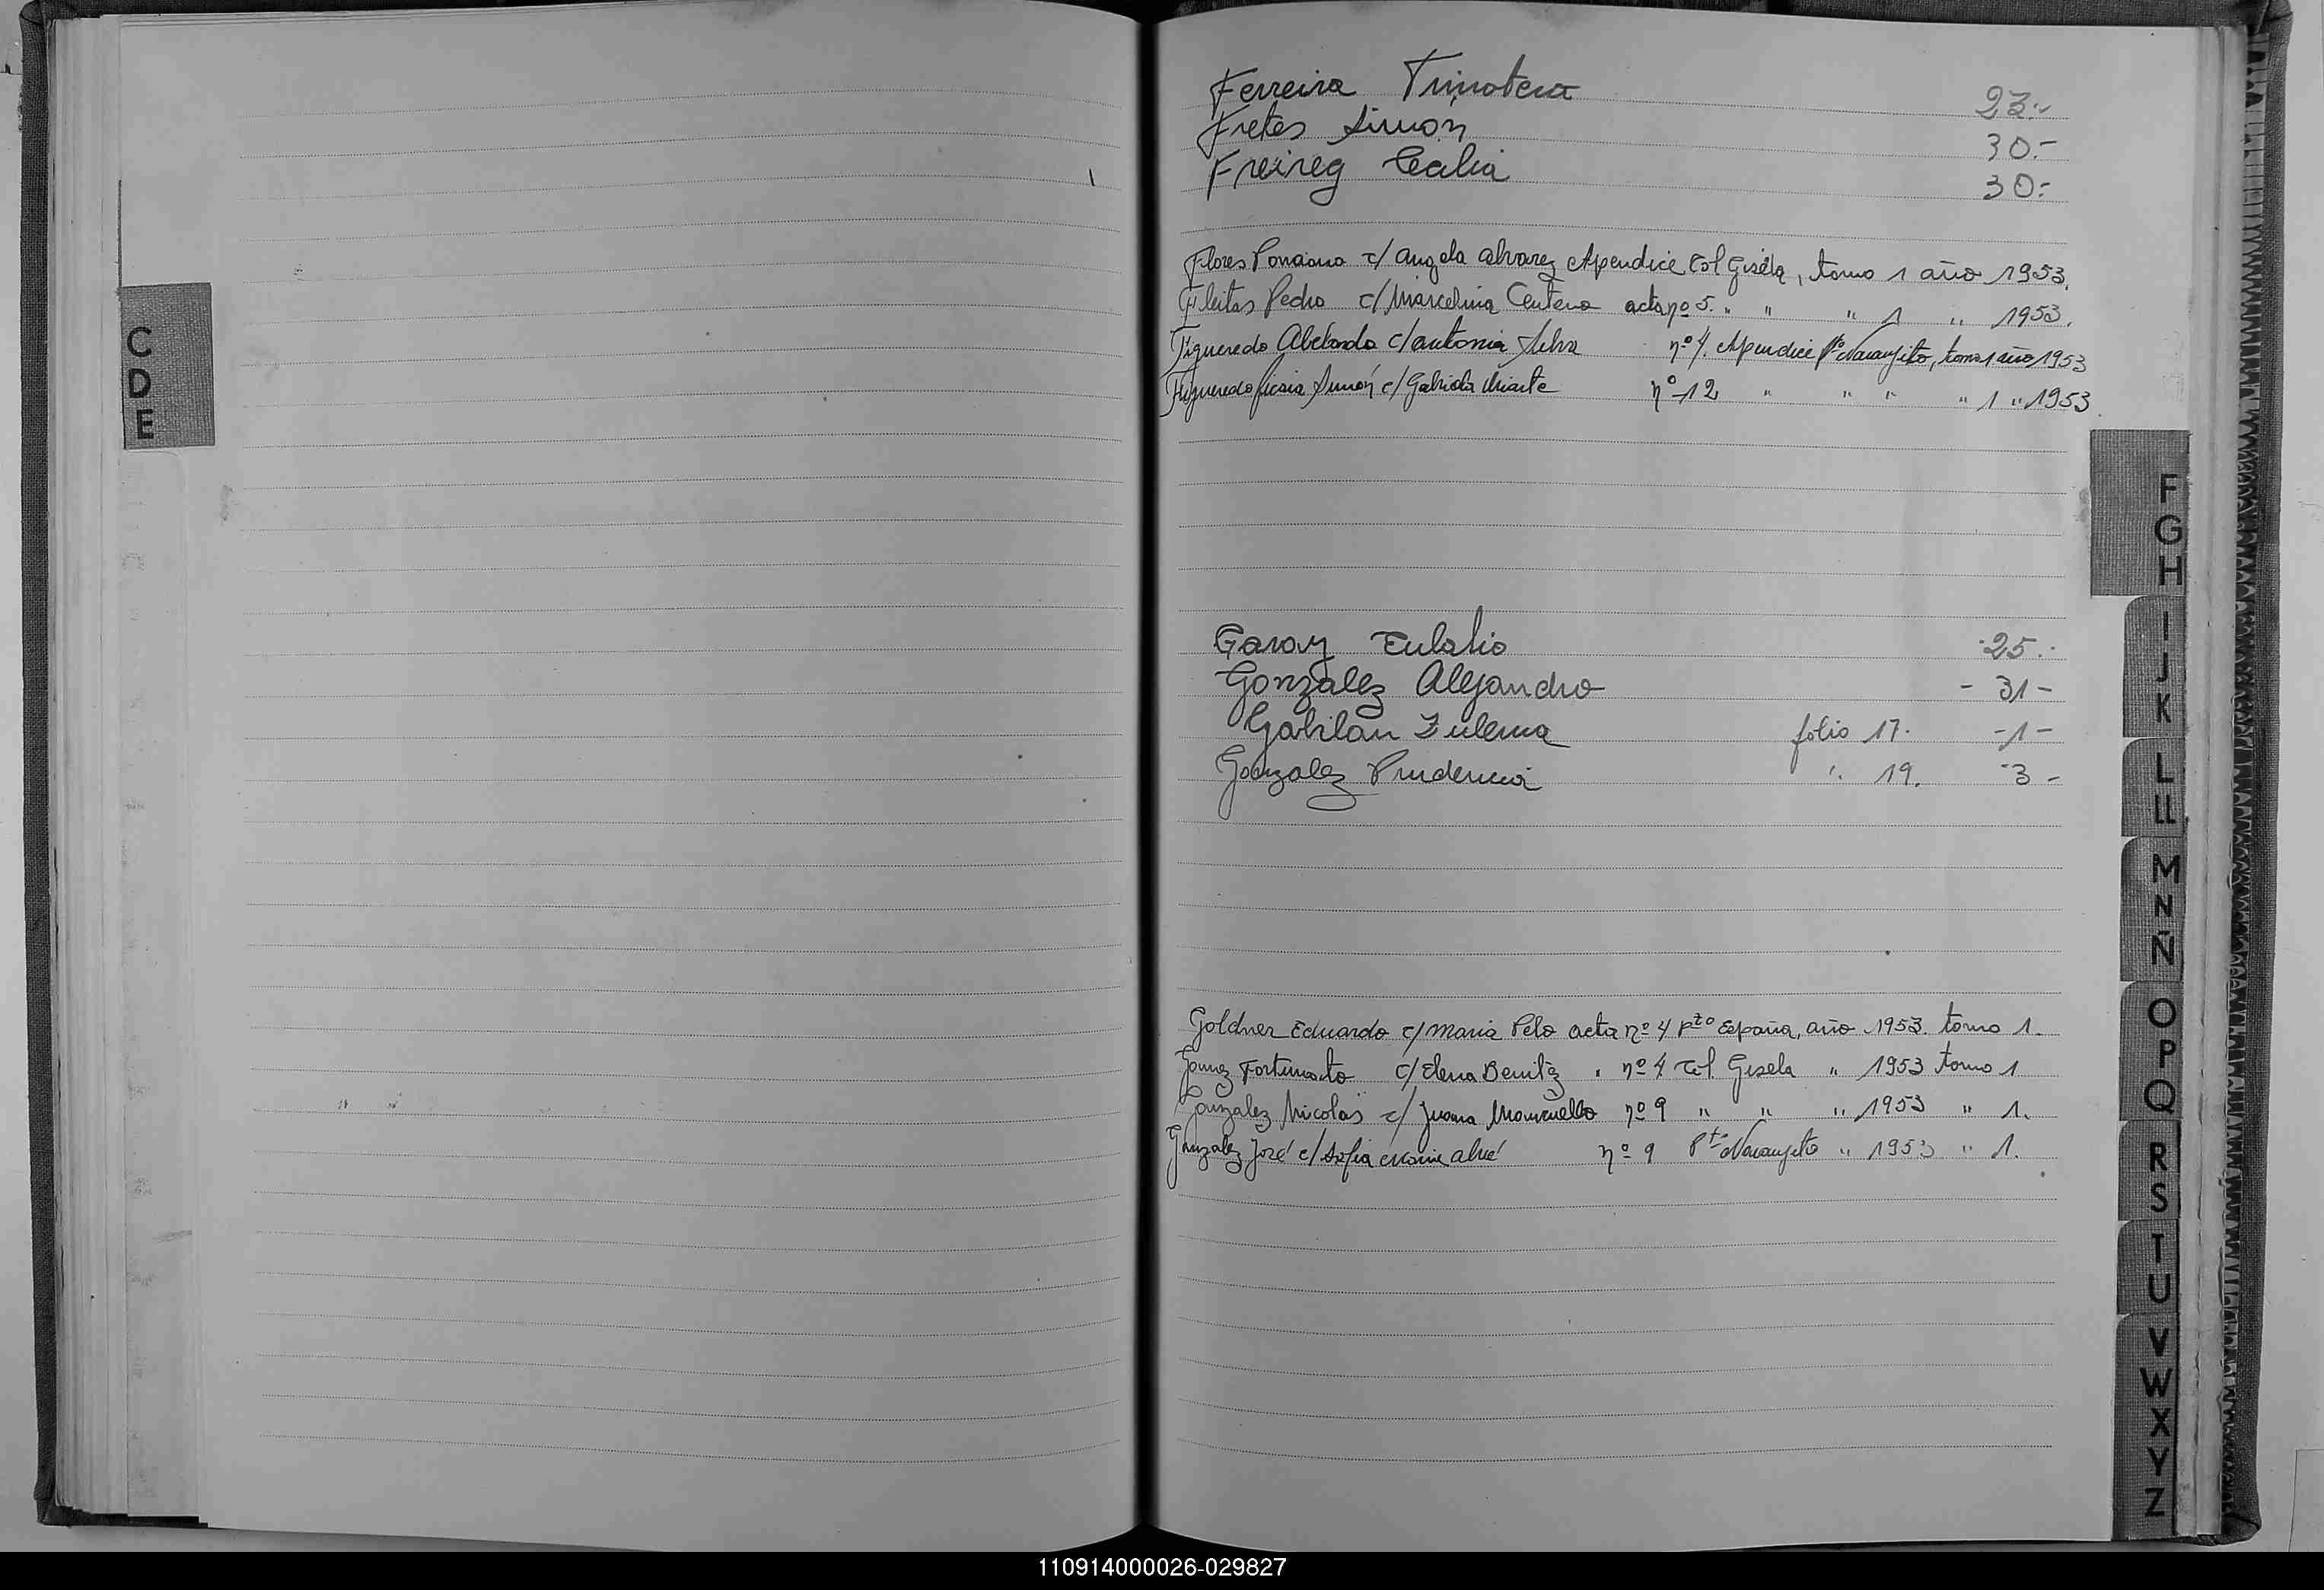 C
D
E
Ferreira Timotea 23.-
Fretes Simón 30.-
Freireg Celia 30.-
Flores Ponciano c/ Angela Alvarez Apendice Col Gisela, tomo 1 año 1953.
Fleitas Pedro c/ Marcelina Centeno acta nº 5. " " " 1 " 1953.
Figueredo Abelardo c/ Antonia Silva nº 4. Apendice Pto Naranjito, tomo 1 año 1953
Figueredo Simón c/ Gabriela nº 12 " " " " 1 " 1953.
Garay Eulalio 25.-
Gonzalez Alejandro - 31 -
Gabilan Zulema folio 17. - 1 -
Gonzalez Prudencia " 19. - 3 -
Goldner Eduardo c/ Maria Pelo acta nº 4 Pto España, año 1953. tomo 1.
Gomez Fortunato c/ Elena Benitez " nº 4 Col. Gisela " 1953 tomo 1
Gonzalez Nicolas c/ Juana nº 9 " " " 1953 " 1.
Gonzalez José c/ Sofia nº 9 Pto Naranjito " 1953 " 1.
F
G
H
I
J
K
L
LL
M
N
Ñ
O
P
Q
R
S
T
U
V
W
X
Y
Z
110914000026-029827